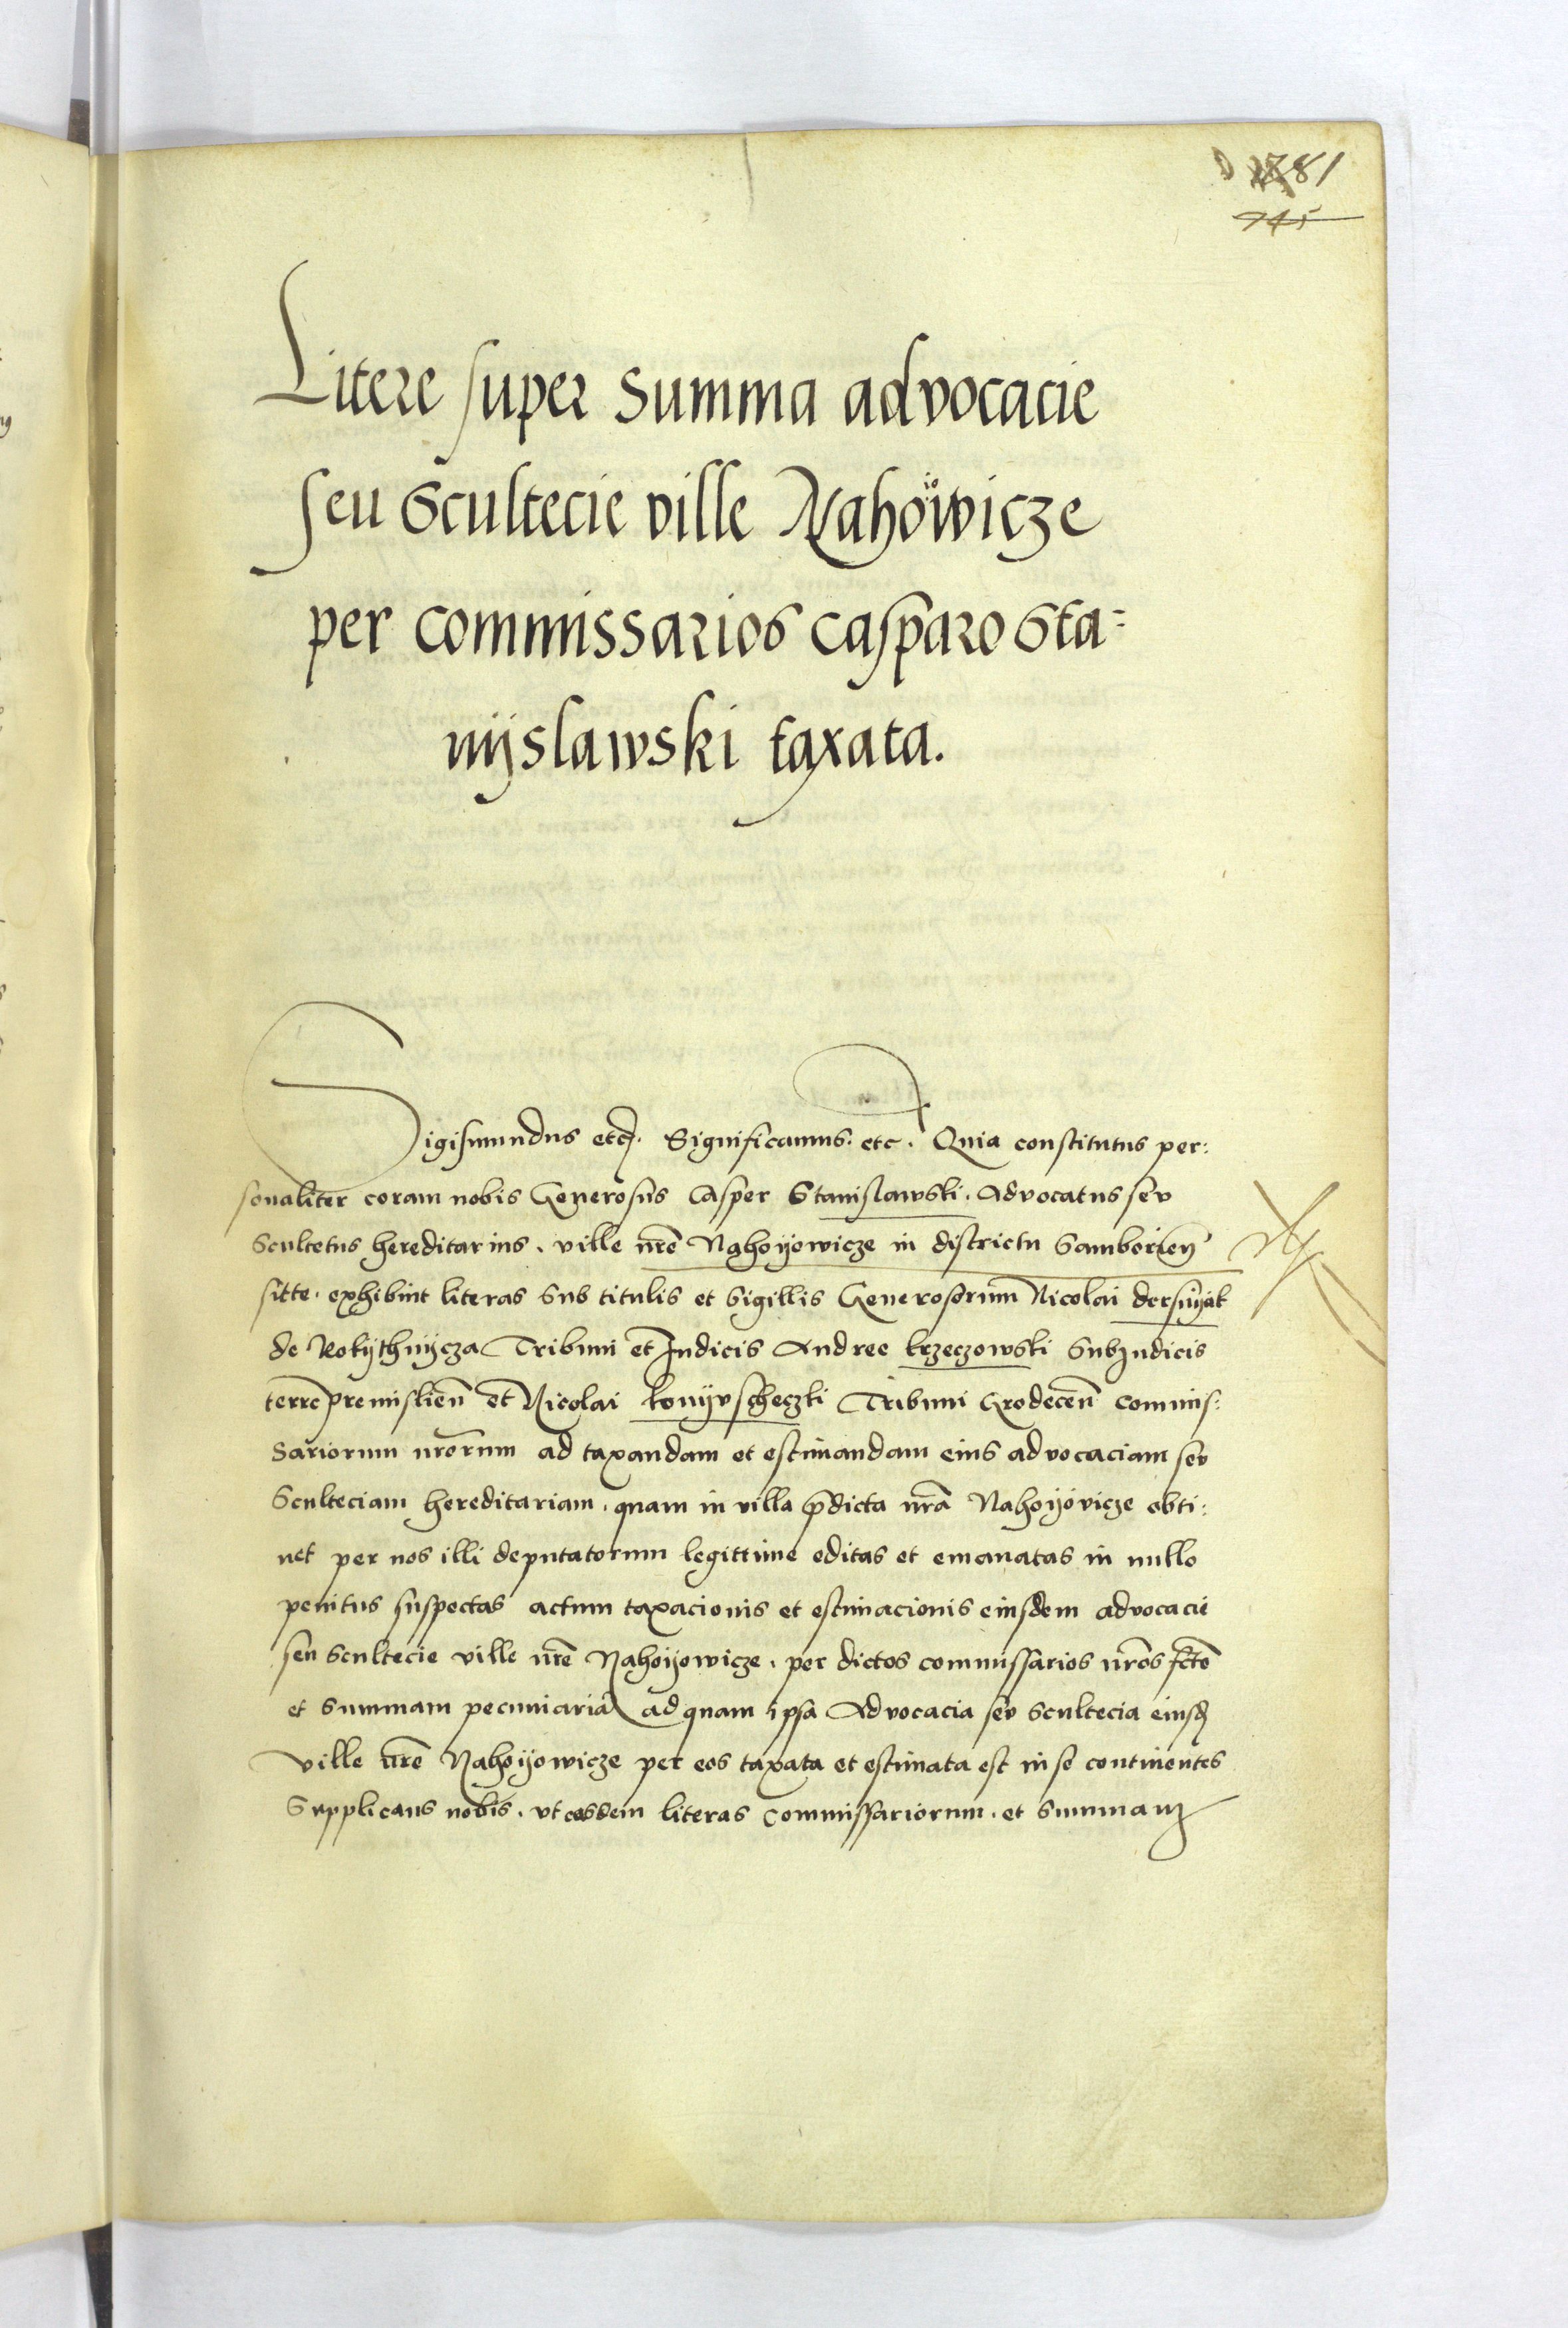 81
745
Litere super summa advocacie
seu Scultecie ville Nahoẅicze
per commissarios Casparo Sta=
nyslawski taxata.
Sigismundus etc. Significamus. etc. Quia constitutus per:
sonaliter coram nobis Generosus Casper Stanislawski. Advocatus seu
Scultetus hereditarius. ville nr̃e Nahoyowicze in districtu Samborien̄
sitte. exhibuit literas sub titulis et sigillis Generosorum Nicolai dersnyak
de Rokythnycza Tribuni et Iudicis Andree krzeczowski Subiudicis
terre premislien̄ et Nicolai konyvscheczki Tribuni Grodecen̄ commis:
sariorum nr̃orum ad taxandam et estimandam eius advocaciam seu
Sculteciam hereditariam. quam in villa p̄dicta nr̃a Nahoyovicze obti:
net per nos illi deputatorum legittime editas et emanatas in nullo
penitus suspectas actum taxacionis et estimacionis eiusdem advocacie
seu scultecie ville nr̃e Nahoyowicze. per dictos commissarios nr̃os fct̃o
et summam pecuniariā ad quam ipsa Advocacia seu scultecia eiusd
ville nr̃e Nahoyowicze per eos taxata et estimata est in se continentes
Supplicans nobis. vt easdem literas commissariorum. et summam